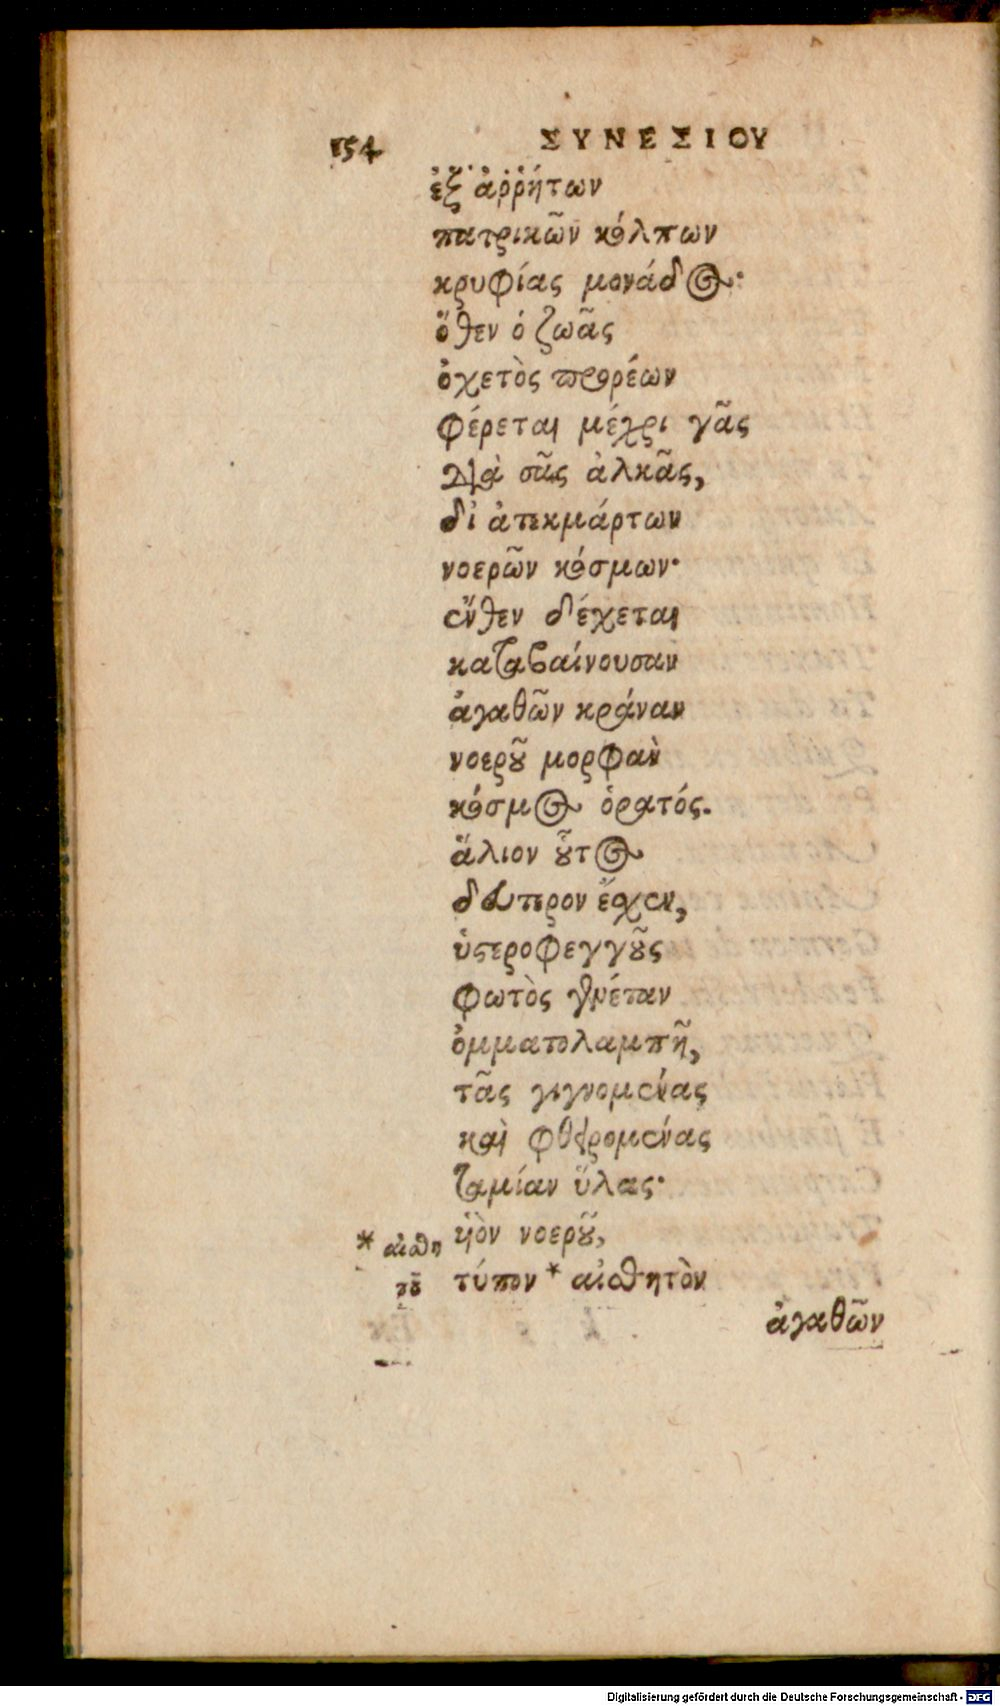 154 ΣΥΝΕΣΙΟΥ
ἐξ ἀῤῥήτων
πατρικῶν κόλπων
κρυφίας μονάδος·
ὅθεν ὁ ζωᾶς
ὀχετὸς προρέων
φέρεται μέχρι γᾶς
διὰ σᾶς ἀλκᾶς,
δι' ἀτεκμάρτων
νοερῶν κόσμων·
ἔνθεν δέχεται
καταβαίνουσαν
ἀγαθῶν κράναν
νοεροῦ μορφὰν
κόσμος ὁρατός.
ἅλιον οὗτος
δεύτερον ἔχει,
ὑστεροφεγγοῦς
φωτὸς γενέταν
ὀμματολαμπῆ,
τᾶς γιγνομένας
καὶ φθειρομένας
ταμίαν ὕλας·
υἱὸν νοεροῦ,
* αἰσθη
τοῦ
τύπον * αἰσθητὸν
ἀγαθῶν
Digitalisierung gefördert durch die Deutsche Forschungsgemeinschaft - DFG